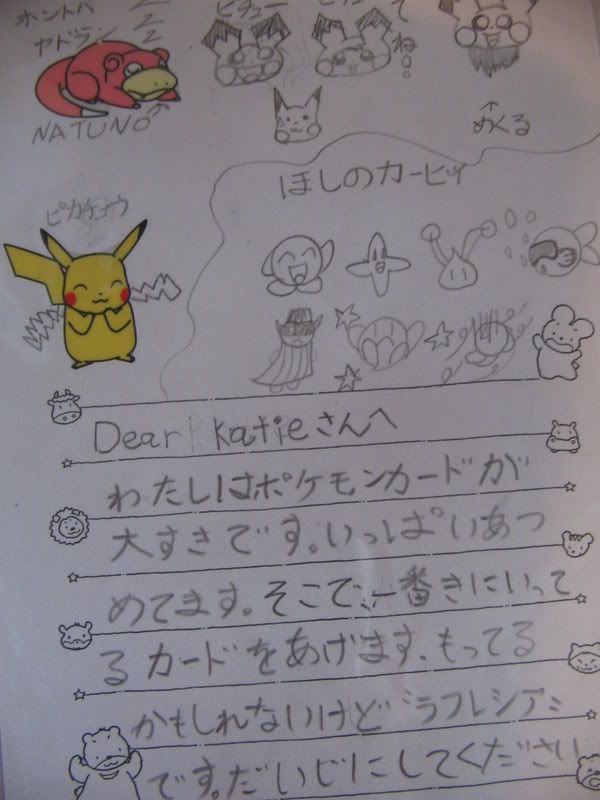 ホントハ
ヤドラン
ZZZ
ピチュー
てね!!
NATUNO
めくる
ほしのカービィ
ピカチュウ
Dear katieさんへ
わたしはポケモンカードが
大すきです。いっぱいあつ
めてます。そこで、一番きにいって
るカードをあげます、もってる
かもしれないけど ラフレシア
です。だいじにしてください